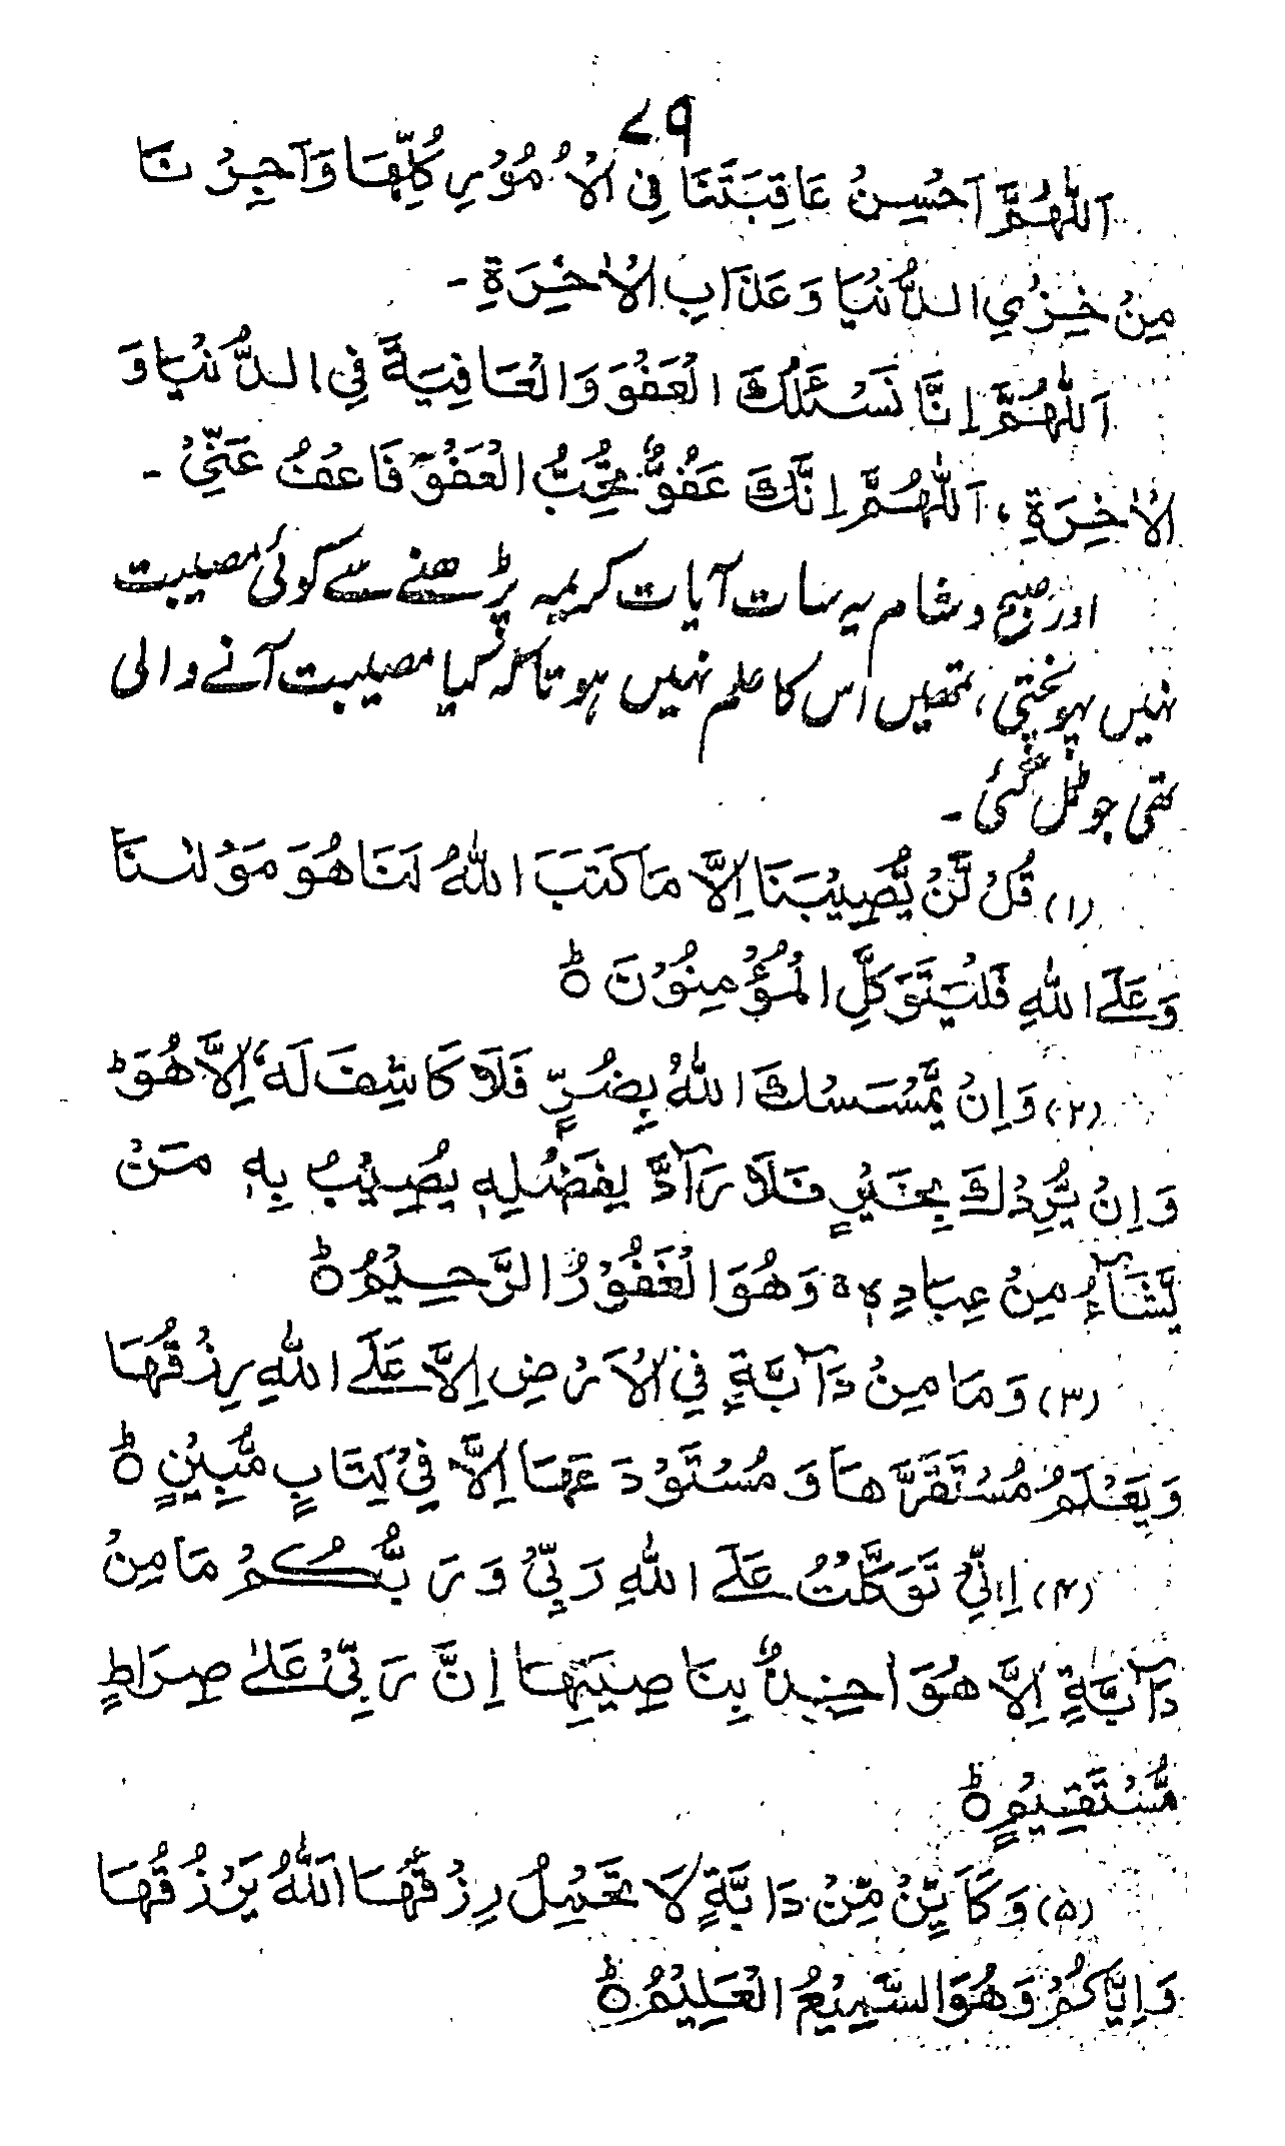 ۷۹
اَللّٰهُمَّ اَحْسِنْ عَاقِبَتَنَا فِی الْاُمُوْرِ كُلِّهَا وَاَجِرْنَا
مِنْ خِزْیِ الدُّنْیَا وَعَذَابِ الْاٰخِرَةِ ۔
اَللّٰهُمَّ اِنَّا نَسْئَلُكَ الْعَفْوَ وَالْعَافِیَةَ فِی الدُّنْیَا وَ
الْاٰخِرَةِ ، اَللّٰهُمَّ اِنَّكَ عَفُوٌّ تُحِبُّ الْعَفْوَ فَاعْفُ عَنِّیْ ۔
اور صبح و شام یہ سات آیات کریمہ پڑھنے سے کوئی مصیبت
نہیں پہونچتی ، تمھیں اس کا علم نہیں ہوتا کہ کیا مصیبت آنے والی
تھی جو ٹل گئی ۔
(۱) قُلْ لَّنْ یُّصِیْبَنَا اِلَّا مَا كَتَبَ اللهُ لَنَا هُوَ مَوْلٰنَا
وَعَلَی اللهِ فَلْیَتَوَكَّلِ الْمُؤْمِنُوْنَ ؕ
(۲) وَاِنْ یَّمْسَسْكَ اللهُ بِضُرٍّ فَلَا كَاشِفَ لَهٗ اِلَّا هُوَ ؕ
وَاِنْ یُّرِدْكَ بِخَیْرٍ فَلَا رَآدَّ لِفَضْلِهٖ یُصِیْبُ بِهٖ مَنْ
یَّشَآءُ مِنْ عِبَادِهٖ ؕ وَهُوَ الْغَفُوْرُ الرَّحِیْمُ ؕ
(۳) وَمَا مِنْ دَآبَّةٍ فِی الْاَرْضِ اِلَّا عَلَی اللهِ رِزْقُهَا
وَیَعْلَمُ مُسْتَقَرَّهَا وَ مُسْتَوْدَعَهَا اِلَّا فِیْ كِتَابٍ مُّبِیْنٍ ؕ
(۴) اِنِّیْ تَوَكَّلْتُ عَلَی اللهِ رَبِّیْ وَرَبُّكُمْ مَا مِنْ
دَآبَّةٍ اِلَّا هُوَ اٰخِذٌۢ بِنَاصِیَتِهَا اِنَّ رَبِّیْ عَلٰی صِرَاطٍ
مُّسْتَقِیْمٍ ؕ
(۵) وَكَاَیِّنْ مِّنْ دَابَّةٍ لَا تَحْمِلُ رِزْقَهَا اَللهُ یَرْزُقُهَا
وَاِیَّاكُمْ وَهُوَ السَّمِیْعُ الْعَلِیْمُ ؕ